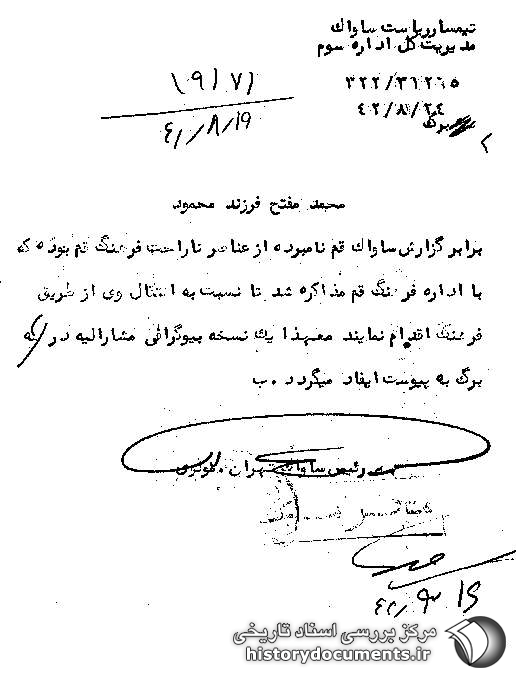 تیمسار ریاست ساواک
مدیریت کل اداره سوم
۳۲۲/۳۱۲۶۵
۴۲/۸/۲۴
برگ
۱۹۱۷۱
۴۲/۸/۱۹
محمد مفتح فرزند محمود
برابر گزارش ساواک قم نامبرده از عناصر ناراحت فرهنگ قم بوده که
با اداره فرهنگ قم مذاکره شد تا نسبت به انتقال وی از طریق
فرهنگ اقدام نمایند معهذا یک نسخه بیوگرافی مشارالیه در
برگ به پیوست ایفاد میگردد . ب
رئیس ساواک تهران . مولوی
مرکز بررسی اسناد تاریخی
historydocuments.ir